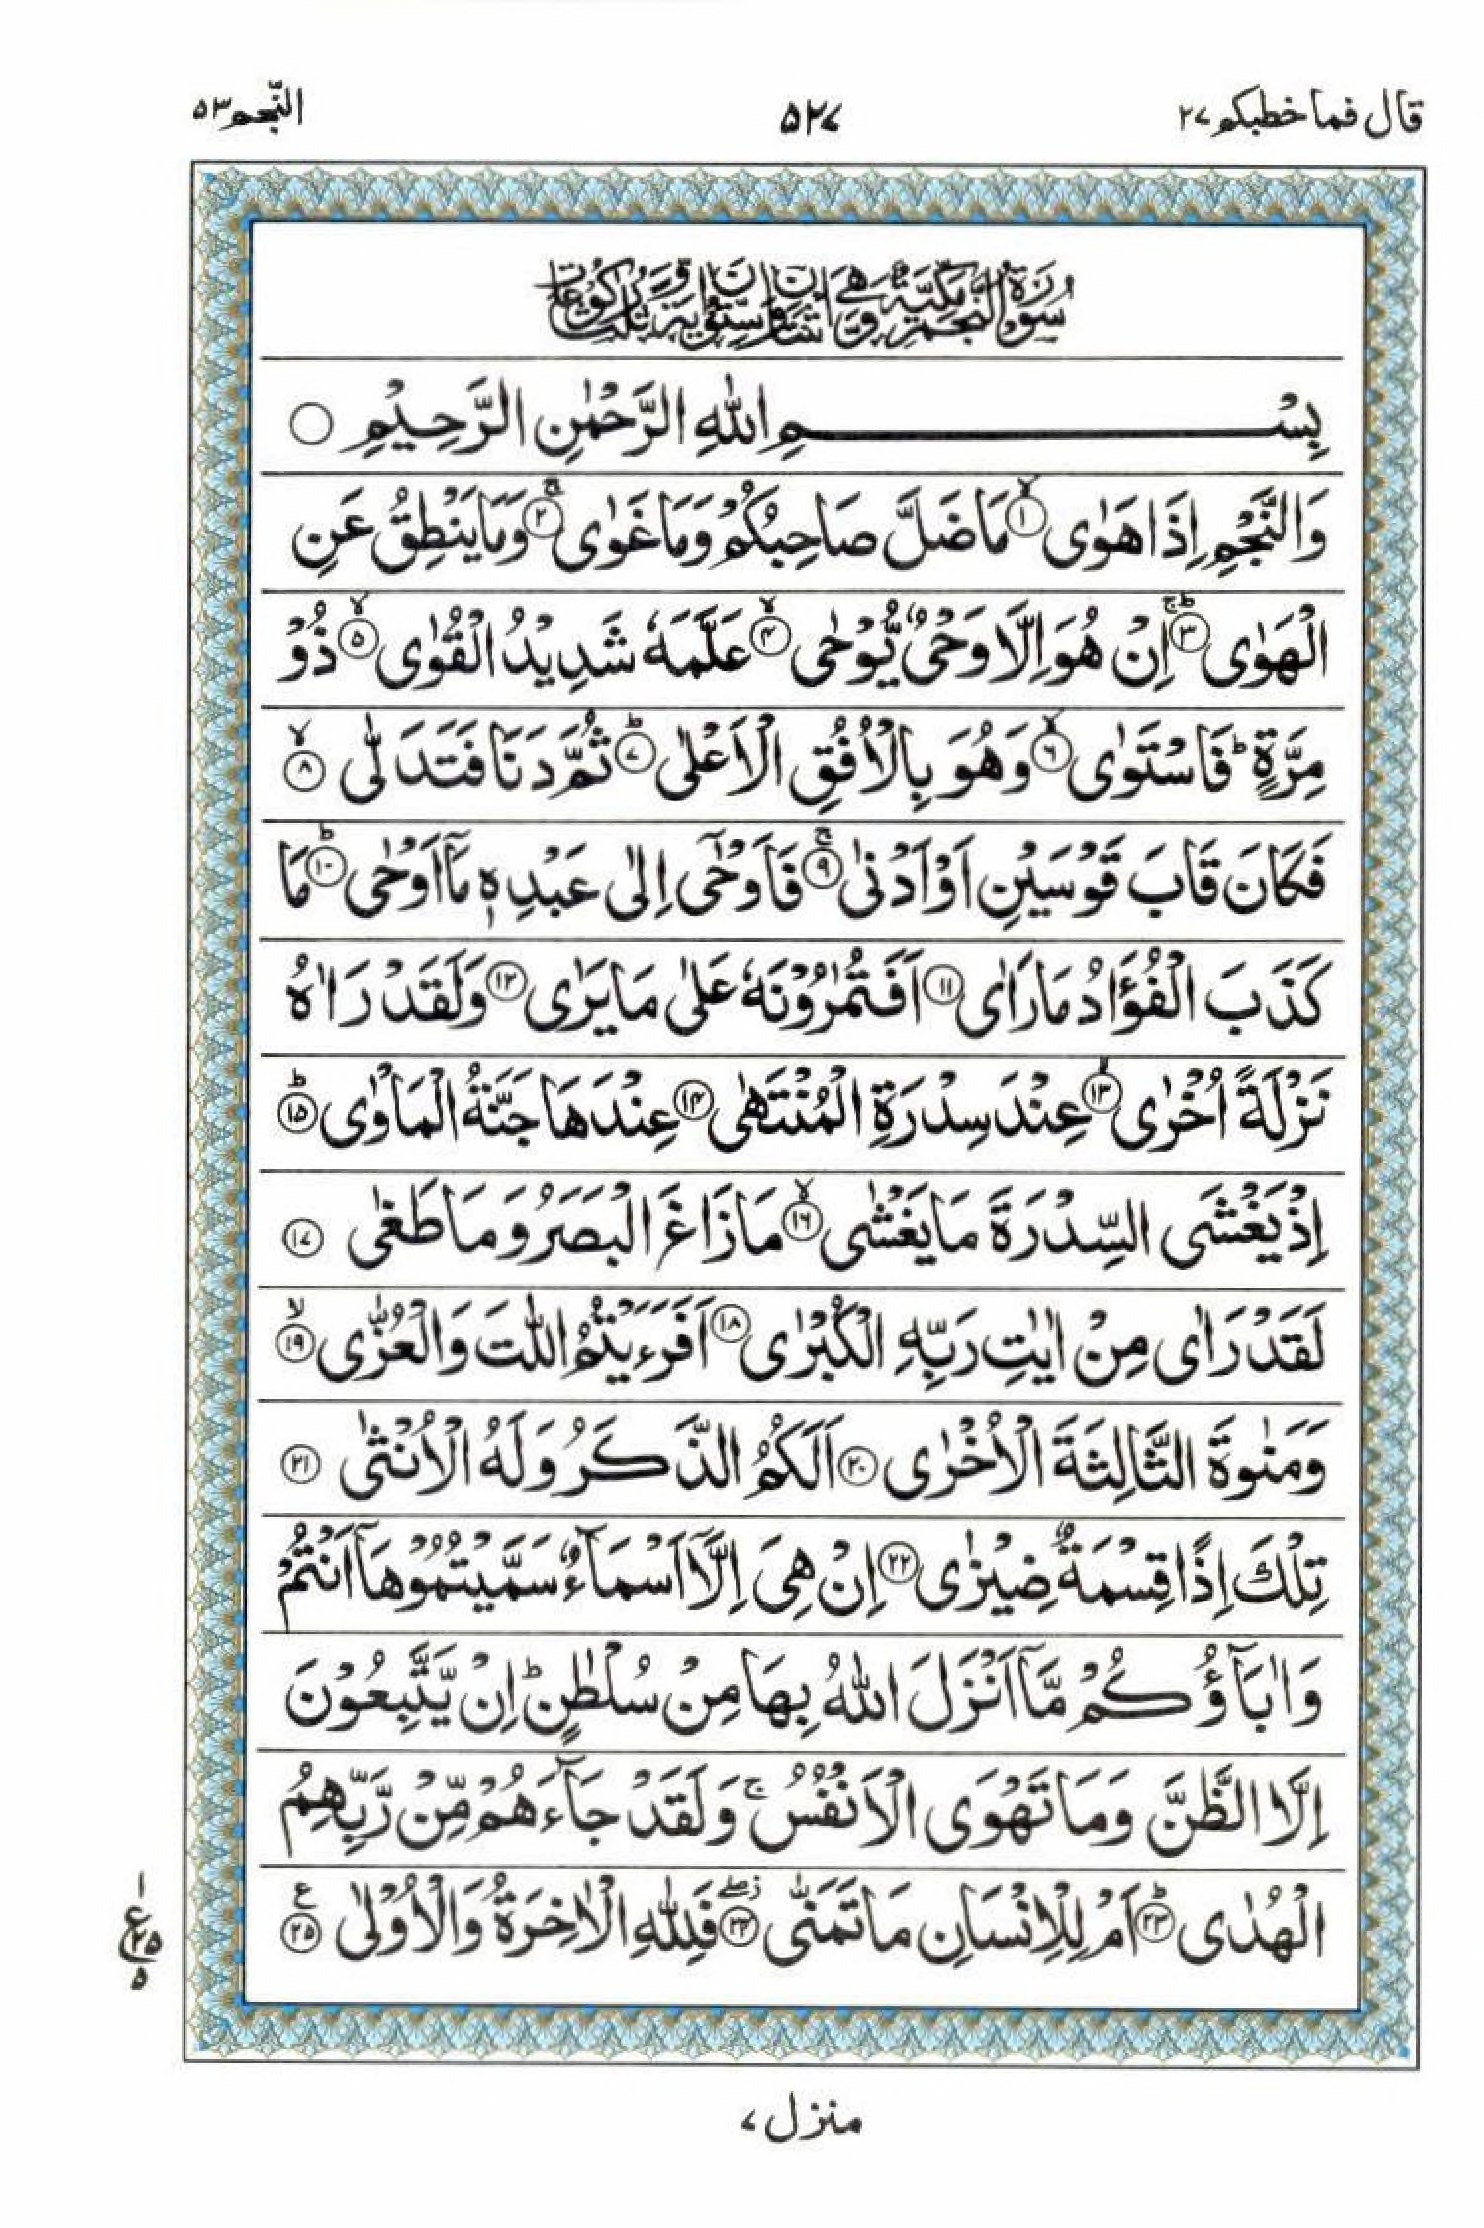 قال فما خطبكم ٢٧
٥٢٧
النّجم ٥٣
سُوْرَةُ النَّجْمِ مَكِّيَّةٌ وَّهِيَ اثْنَتَانِ وَسِتُّوْنَ اٰيَةً وَّثَلٰثُ رُكُوْعَاتٍ
بِسْمِ اللّٰهِ الرَّحْمٰنِ الرَّحِيْمِ ○
وَالنَّجْمِ اِذَا هَوٰى ۙ﴿١﴾ مَا ضَلَّ صَاحِبُكُمْ وَمَا غَوٰى ۚ﴿٢﴾ وَمَا يَنْطِقُ عَنِ
الْهَوٰى ؕۚ﴿٣﴾ اِنْ هُوَ اِلَّا وَحْىٌ يُّوْحٰى ۙ﴿٤﴾ عَلَّمَهٗ شَدِيْدُ الْقُوٰى ۙ﴿٥﴾ ذُوْ
مِرَّةٍ ؕ فَاسْتَوٰى ۙ﴿٦﴾ وَهُوَ بِالْاُفُقِ الْاَعْلٰى ؕ﴿٧﴾ ثُمَّ دَنَا فَتَدَلّٰى ۙ﴿٨﴾
فَكَانَ قَابَ قَوْسَيْنِ اَوْ اَدْنٰى ۚ﴿٩﴾ فَاَوْحٰٓى اِلٰى عَبْدِهٖ مَاۤ اَوْحٰى ؕ﴿١٠﴾ مَا
كَذَبَ الْفُؤَادُ مَا رَاٰى ﴿١١﴾ اَفَتُمٰرُوْنَهٗ عَلٰى مَا يَرٰى ﴿١٢﴾ وَلَقَدْ رَاٰهُ
نَزْلَةً اُخْرٰى ۙ﴿١٣﴾ عِنْدَ سِدْرَةِ الْمُنْتَهٰى ﴿١٤﴾ عِنْدَهَا جَنَّةُ الْمَاْوٰى ؕ﴿١٥﴾
اِذْ يَغْشَى السِّدْرَةَ مَا يَغْشٰى ۙ﴿١٦﴾ مَا زَاغَ الْبَصَرُ وَمَا طَغٰى ﴿١٧﴾
لَقَدْ رَاٰى مِنْ اٰيٰتِ رَبِّهِ الْكُبْرٰى ﴿١٨﴾ اَفَرَءَيْتُمُ اللّٰتَ وَالْعُزّٰى ۙ﴿١٩﴾
وَمَنٰوةَ الثَّالِثَةَ الْاُخْرٰى ﴿٢٠﴾ اَلَكُمُ الذَّكَرُ وَلَهُ الْاُنْثٰى ﴿٢١﴾
تِلْكَ اِذًا قِسْمَةٌ ضِيْزٰى ﴿٢٢﴾ اِنْ هِىَ اِلَّاۤ اَسْمَآءٌ سَمَّيْتُمُوْهَاۤ اَنْتُمْ
وَاٰبَآؤُكُمْ مَّاۤ اَنْزَلَ اللّٰهُ بِهَا مِنْ سُلْطٰنٍ ؕ اِنْ يَّتَّبِعُوْنَ
اِلَّا الظَّنَّ وَمَا تَهْوَى الْاَنْفُسُ ۚ وَلَقَدْ جَآءَهُمْ مِّنْ رَّبِّهِمُ
الْهُدٰى ؕ﴿٢٣﴾ اَمْ لِلْاِنْسَانِ مَا تَمَنّٰى ۖ﴿٢٤﴾ فَلِلّٰهِ الْاٰخِرَةُ وَالْاُوْلٰى ﴿٢٥﴾ ع
١
ع ٢٥
٥
منزل ٧